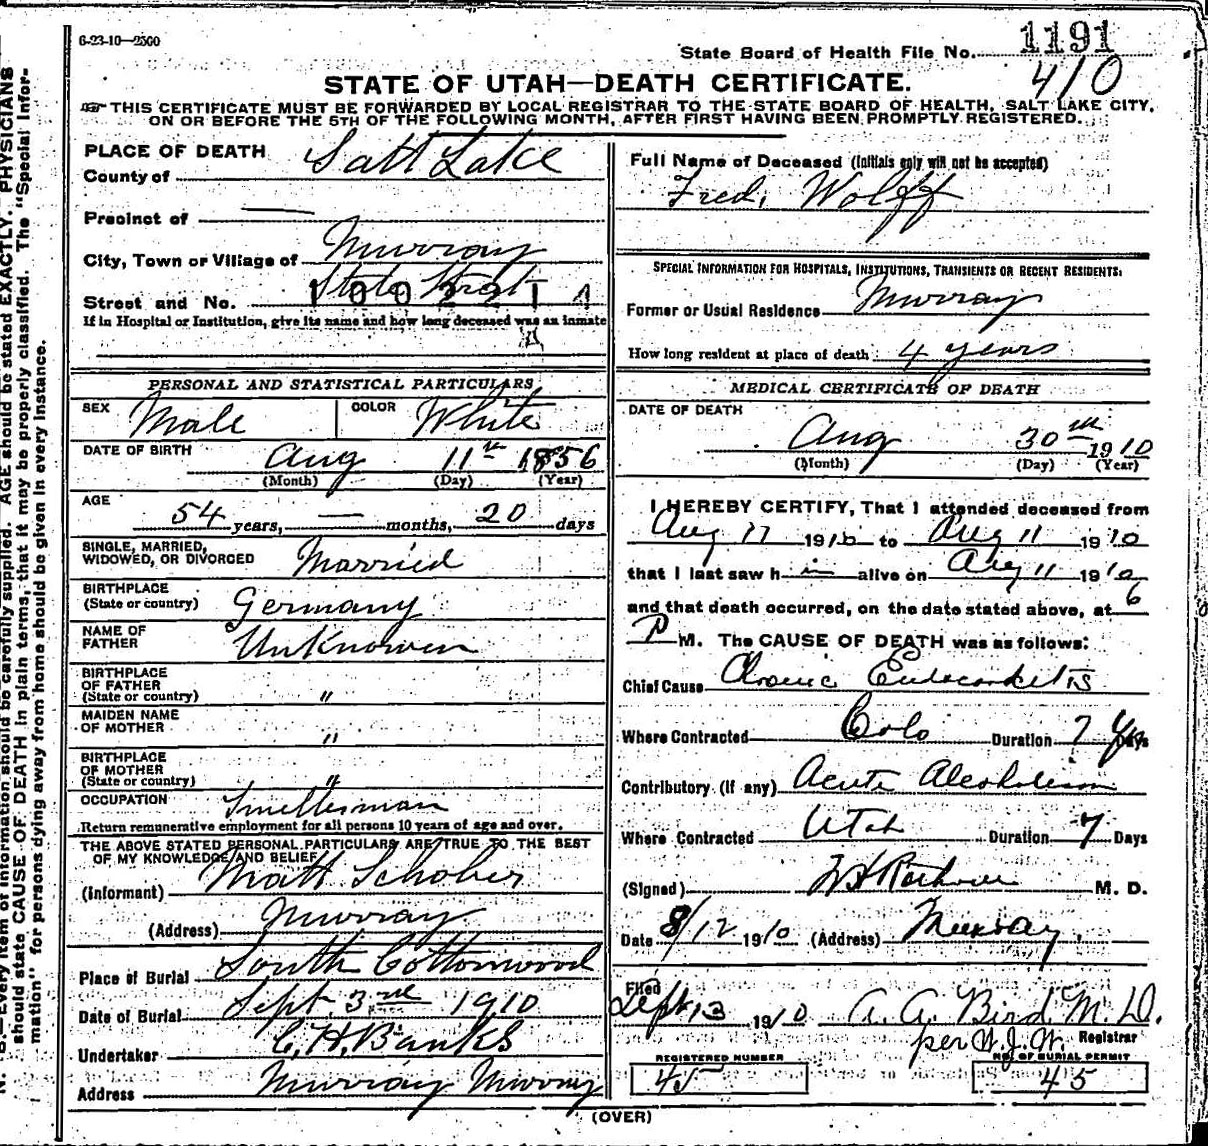 6-23-10—2500
State Board of Health File No. 1191
410
STATE OF UTAH—DEATH CERTIFICATE.
THIS CERTIFICATE MUST BE FORWARDED BY LOCAL REGISTRAR TO THE STATE BOARD OF HEALTH, SALT LAKE CITY,
ON OR BEFORE THE 5TH OF THE FOLLOWING MONTH, AFTER FIRST HAVING BEEN PROMPTLY REGISTERED.
PLACE OF DEATH
County of Salt Lake
Precinct of —
City, Town or Village of Murray
Street and No. State Street
If in Hospital or Institution, give its name and how long deceased was an inmate
PERSONAL AND STATISTICAL PARTICULARS
SEX Male COLOR White
DATE OF BIRTH Aug 11th 1856
(Month) (Day) (Year)
AGE
54 years, — months, 20 days
SINGLE, MARRIED,
WIDOWED, OR DIVORCED Married
BIRTHPLACE
(State or country) Germany
NAME OF
FATHER Unknowen
BIRTHPLACE
OF FATHER
(State or country) "
MAIDEN NAME
OF MOTHER "
BIRTHPLACE
OF MOTHER
(State or country) "
OCCUPATION Smelterman
Return remunerative employment for all persons 10 years of age and over.
THE ABOVE STATED PERSONAL PARTICULARS ARE TRUE TO THE BEST
OF MY KNOWLEDGE AND BELIEF
(Informant) Matt Schober
(Address) Murray
Place of Burial South Cottonwood
Date of Burial Sept. 3rd 1910
Undertaker C. H. Banks
Address Murray Murray
Full Name of Deceased (Initials only will not be accepted)
Fred, Wolff
SPECIAL INFORMATION FOR HOSPITALS, INSTITUTIONS, TRANSIENTS OR RECENT RESIDENTS:
Former or Usual Residence Murray
How long resident at place of death 4 years
MEDICAL CERTIFICATE OF DEATH
DATE OF DEATH
Aug 30th 1910
(Month) (Day) (Year)
I HEREBY CERTIFY, That I attended deceased from
Aug 11 1910 to Aug 11 1910
that I last saw him alive on Aug 11 1910
and that death occurred, on the date stated above, at 6
P M. The CAUSE OF DEATH was as follows:
Chief Cause Chronic Endocarditis
Where Contracted Colo Duration 7 Yrs Days
Contributory (If any) Acute Alcoholism
Where Contracted Utah Duration 7 Days
(Signed) M. D.
Date 8/12 1910 (Address) Murray,
Filed
Sept, 3 1910 A. A. Bird M. D.
per W. J. W. Registrar
REGISTERED NUMBER
45
NO. OF BURIAL PERMIT
45
(OVER)
N. B.—Every item of information should be carefully supplied. AGE should be stated EXACTLY. PHYSICIANS
should state CAUSE OF DEATH in plain terms, that it may be properly classified. The "Special Infor-
mation" for persons dying away from home should be given in every instance.